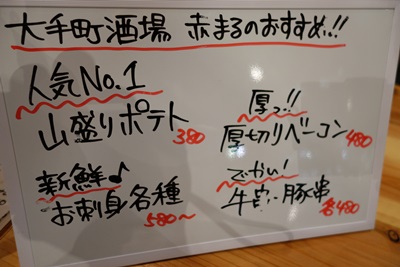 大手町酒場 赤まるのおすすめ!!
人気No.1
山盛りポテト 380
厚っ!!
厚切りベーコン 480
新鮮♪
お刺身各種 580〜
でかい!
牛串・豚串 各480